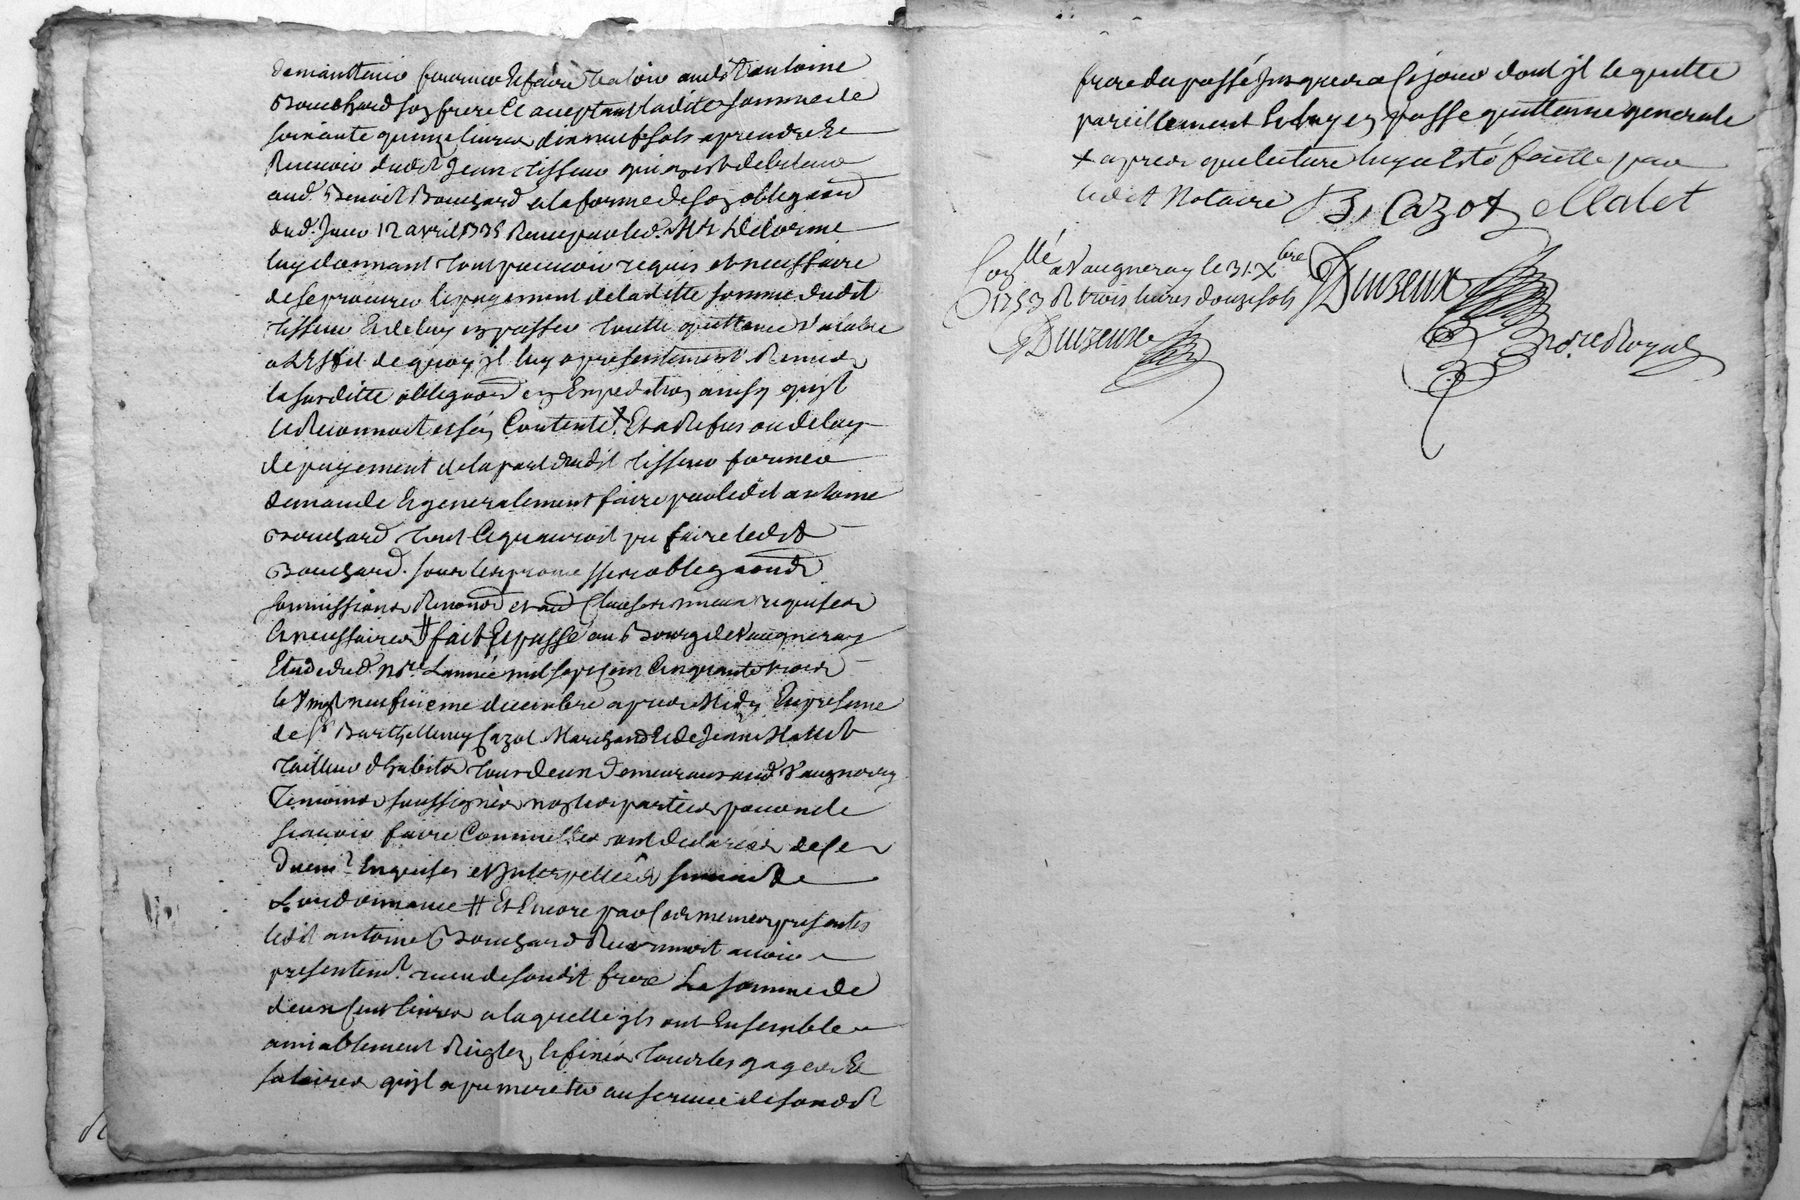 de maintenir fournir et faire valoir audit antoine
Bouchard son frere et acceptant laditte somme de
soixante quinze livres dix neuf sols a prendre et
Recevoir dudt Jean tisseur qui en est debiteur
aud. Benoit Bouchard a la forme de son obligaon
dud. Jour 12 avril Receu par led. Mr Delorme
luy donnant tout pouvoir requis et necessaire
de se procurer le payement de laditte somme dudit
tisseur et de luy en passer toutte quittance valable
a l'Effet de quoy jl luy a presentement Remis
la susditte obligaon en Expedition ainsy qu'jl
le Reconnoit et s'en Contente + Et a Refus ou delay
de payement de la part dudit tisseur former
demande et generalement faire par ledit antoine
Bouchard tout ce qu'auroit pu faire ledit
Bouchard. sous les promesses obligaons
soumissions Renons et aud Clauses mieux requises
et necessaires # fait et passé au Bourg de Vaugneray
Etude dud. Nre L'année mil sept Cent Cinquante trois
le Vingt neufvieme decembre apres Midy En presence
de Sr Barthellemy Cazot Marchand et de Jean Mallet
tailleur d'habits tous deux demeurans aud Vaugneray
Temoins soussignés non les parties pour ne le
scavoir faire Comme elles ont declarées de ce
Duemt Enquises et Interpellées suivant
L'ordonnance # Et Encore par Ces memes presentes
ledit antoine Bouchard Reconnoit avoir
presentemt. receu de sondit frere La somme de
deux Cent livres a laquelle jls ont Ensemble
amiablement Reglez, et fixés tous les gages et
salaires qu'jl a pu meriter au service de sondit
frere du passé Jusques a Ce jour dont jl le quitte
pareillement et luy en passe quittance generale
+ apres que lecture luy a Eté faitte par
ledit Notaire B, Cazot Malet
Conllé a Vaugneray le 31. Xbre
1753 R trois livres douze sols Duizeux
Duizeux Nore Royal